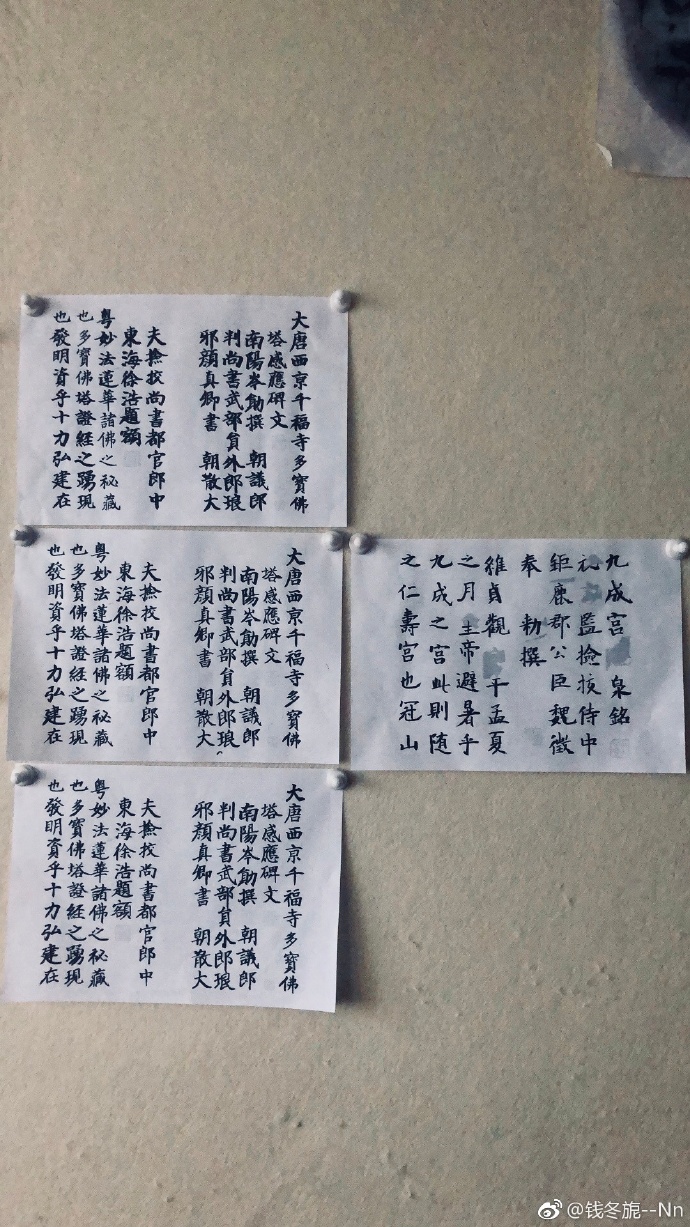 大唐西京千福寺多寶佛
塔感應碑文
南陽岑勛撰 朝議郎
判尚書武部員外郎琅
邪顏真卿書 朝散大
夫撿挍尚書都官郎中
東海徐浩題額
粵妙法蓮華諸佛之秘藏
也多寶佛塔證經之踴現
也發明資乎十力弘建在
大唐西京千福寺多寶佛
塔感應碑文
南陽岑勛撰 朝議郎
判尚書武部員外郎琅
邪顏真卿書 朝散大
夫撿挍尚書都官郎中
東海徐浩題額
粵妙法蓮華諸佛之秘藏
也多寶佛塔證經之踴現
也發明資乎十力弘建在
九成宮 泉銘
監撿挍侍中
鉅鹿郡公臣魏徵
奉 勑撰
維貞觀 年孟夏
之月 帝避暑乎
九成之宮此則随
之仁壽宮也冠山
大唐西京千福寺多寶佛
塔感應碑文
南陽岑勛撰 朝議郎
判尚書武部員外郎琅
邪顏真卿書 朝散大
夫撿挍尚書都官郎中
東海徐浩題額
粵妙法蓮華諸佛之秘藏
也多寶佛塔證經之踴現
也發明資乎十力弘建在
@钱冬旎--Nn